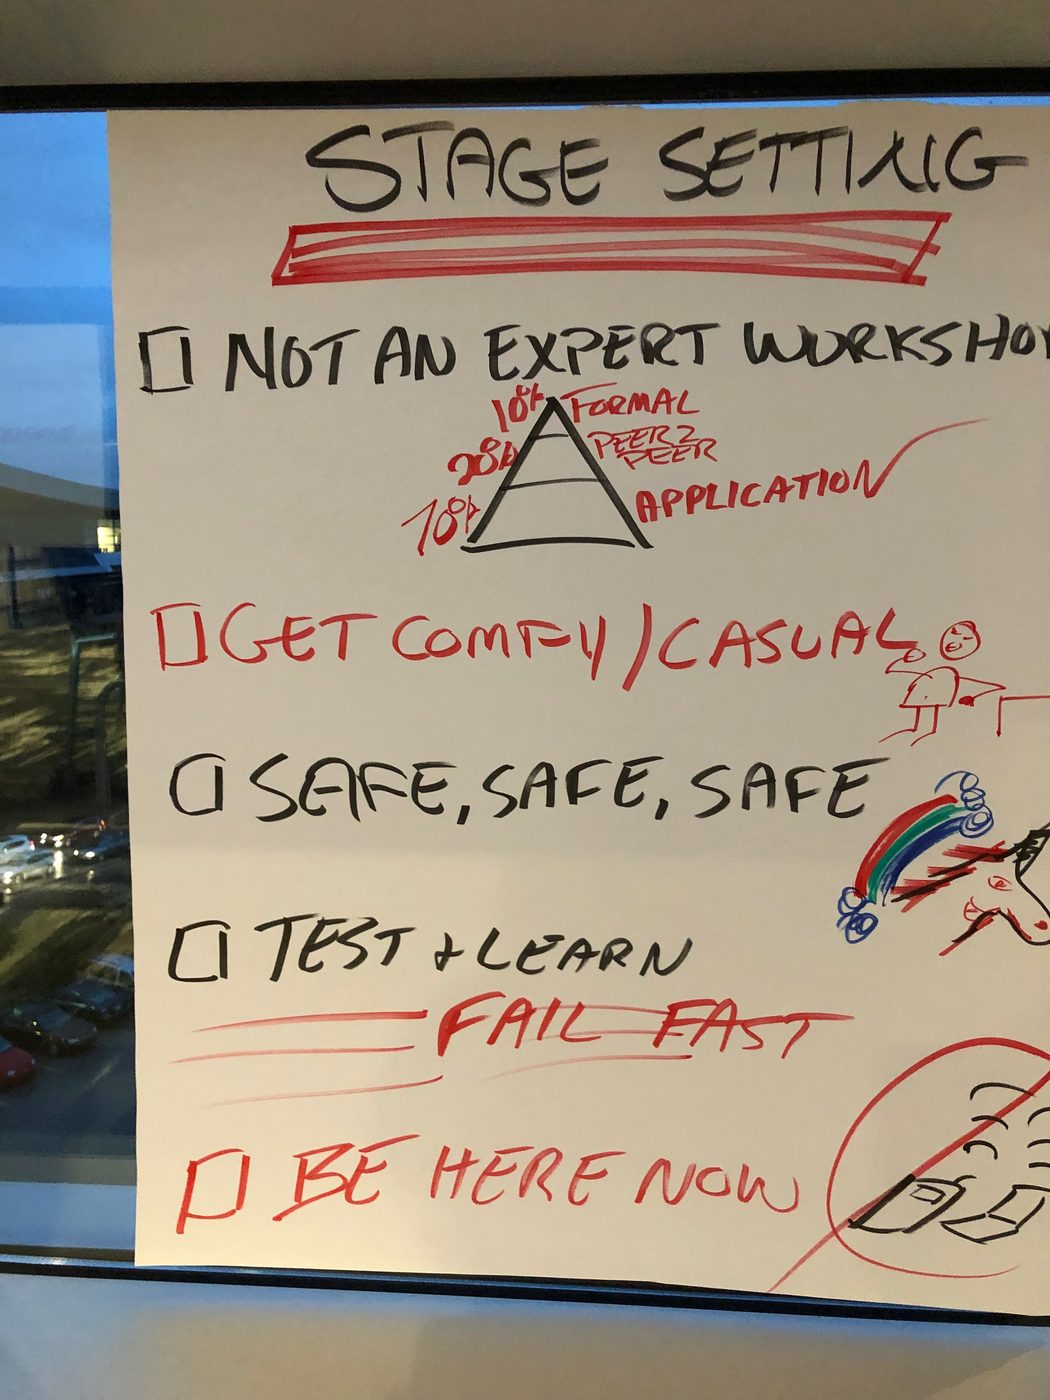 STAGE SETTING
□ NOT AN EXPERT WORKSHOP
10% FORMAL
20% PEER 2 PEER
70% APPLICATION
□ GET COMFY/CASUAL
□ SAFE, SAFE, SAFE
□ TEST + LEARN
FAIL FAST
□ BE HERE NOW